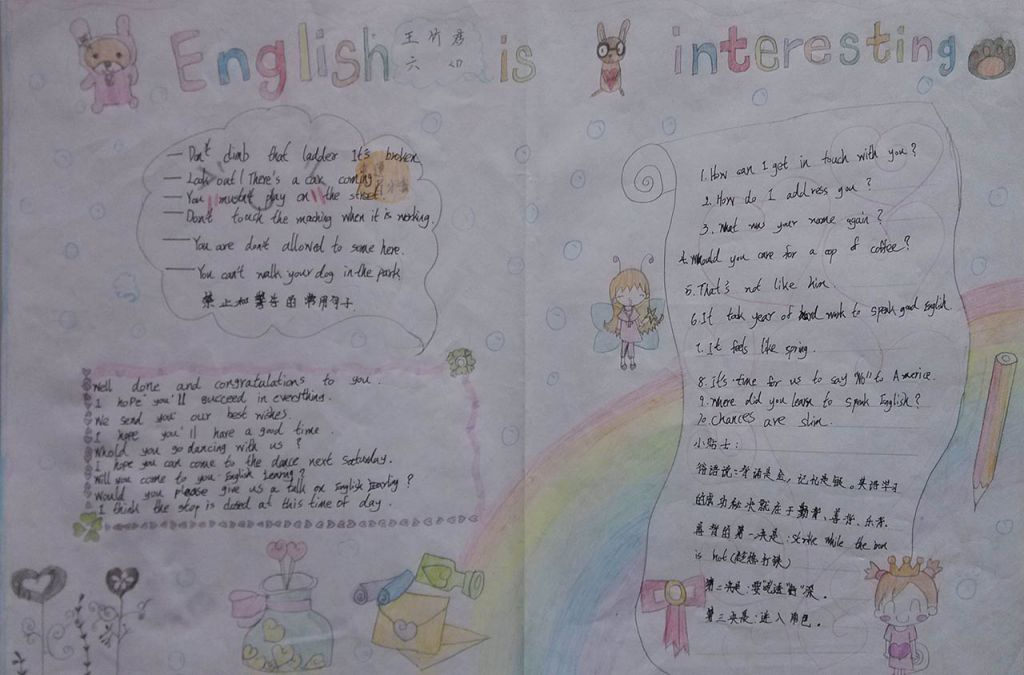 English is interesting
六
— Don't climb that ladder It's broken.
— Look out! There's a car coming
— You mustn't play on the street.
— Don't touch the maching when it is working.
— You are don't allowed to some here.
— You can't walk your dog in the park
禁止和警告的常用句子.
Well done and congratulations to you.
I hope you'll succeed in everything.
We send you our best wishes.
I hope you'll have a good time.
Whold you go dancing with us?
I hope you can come to the dance next Saturday.
Will you come to you English Evening?
Would you please give us a talk on English?
I think the stop is closed at this time of day.
1. How can I get in touch with you?
2. How do I address you?
3. What was your name again?
4. Would you care for a cop of coffee?
5. That's not like him.
6. It took year of hard work to speak good English.
7. It feels like spring.
8. It's time for us to say "No" to America.
9. Where did you learn to speak English?
10. Chances are slim.
小贴士:
俗话说:背诵是金,记忆是银。英语学习
的成功秘决就在于勤学、善学、乐学。
善学的第一决是:strike while the iron
is hot(趁热打铁)
第二决是:要"吃透""学"深。
第三决是:进入角色。